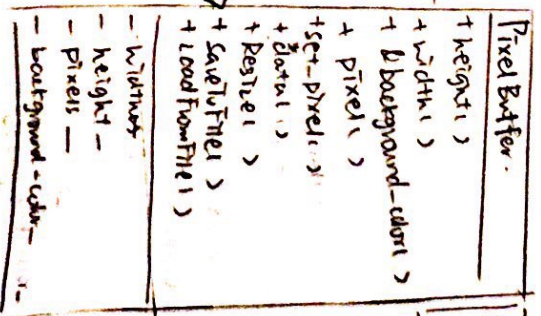 PixelBuffer.
+ height( )
+ width( )
+ &background-color( )
+ pixel( )
+ set-pixel( )
+ data( )
+ Resize( )
+ SaveToFile( )
+ LoadFromFile( )
- width_
- height_
- pixels_
- background-color_